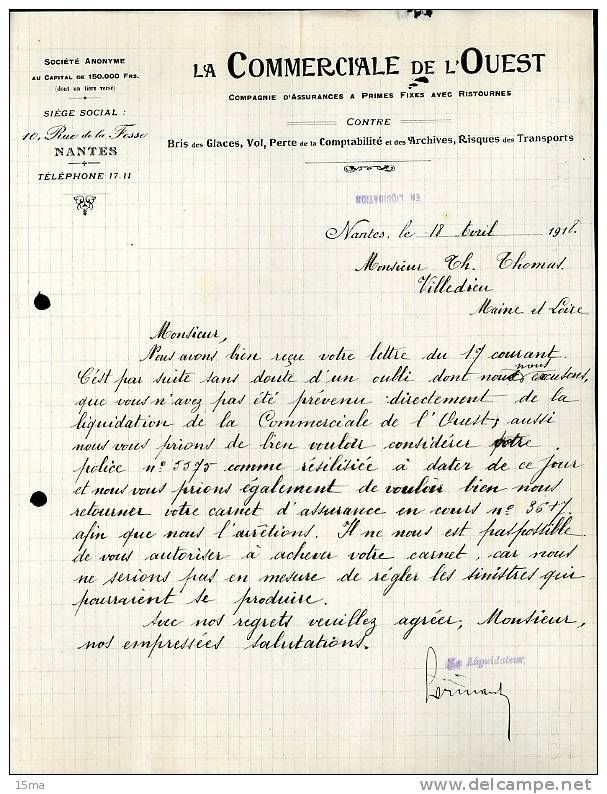 SOCIÉTÉ ANONYME
AU CAPITAL DE 150.000 FRS.
(dont un tiers versé)
SIÈGE SOCIAL :
10, Rue de la Fosse
NANTES
TÉLÉPHONE 17.11
LA COMMERCIALE DE L'OUEST
COMPAGNIE D'ASSURANCES A PRIMES FIXES AVEC RISTOURNES
CONTRE
Bris des Glaces, Vol, Perte de la Comptabilité et des Archives, Risques des Transports
EN LIQUIDATION
Nantes, le 18 Avril 1918.
Monsieur Th. Thomas.
Villedieu
Maine et Loire
Monsieur,
Nous avons bien reçu votre lettre du 17 courant.
C'est par suite sans doute d'un oubli dont nous nous excusons,
que vous n'avez pas été prévenu directement de la
liquidation de la Commerciale de l'Ouest; aussi
nous vous prions de bien vouloir considérer votre
police n° 5575 comme résilisiée à dater de ce jour
et nous vous prions également de vouloir bien nous
retourner votre carnet d'assurance en cours n° 3647.
afin que nous l'arrêtions. Il ne nous est pas possible
de vous autoriser à achever votre carnet, car nous
ne serions pas en mesure de régler les sinistres qui
pourraient se produire.
Avec nos regrets veuillez agréer, Monsieur,
nos empressées salutations.
Le Liquidateur,
15ma
delcampe.net